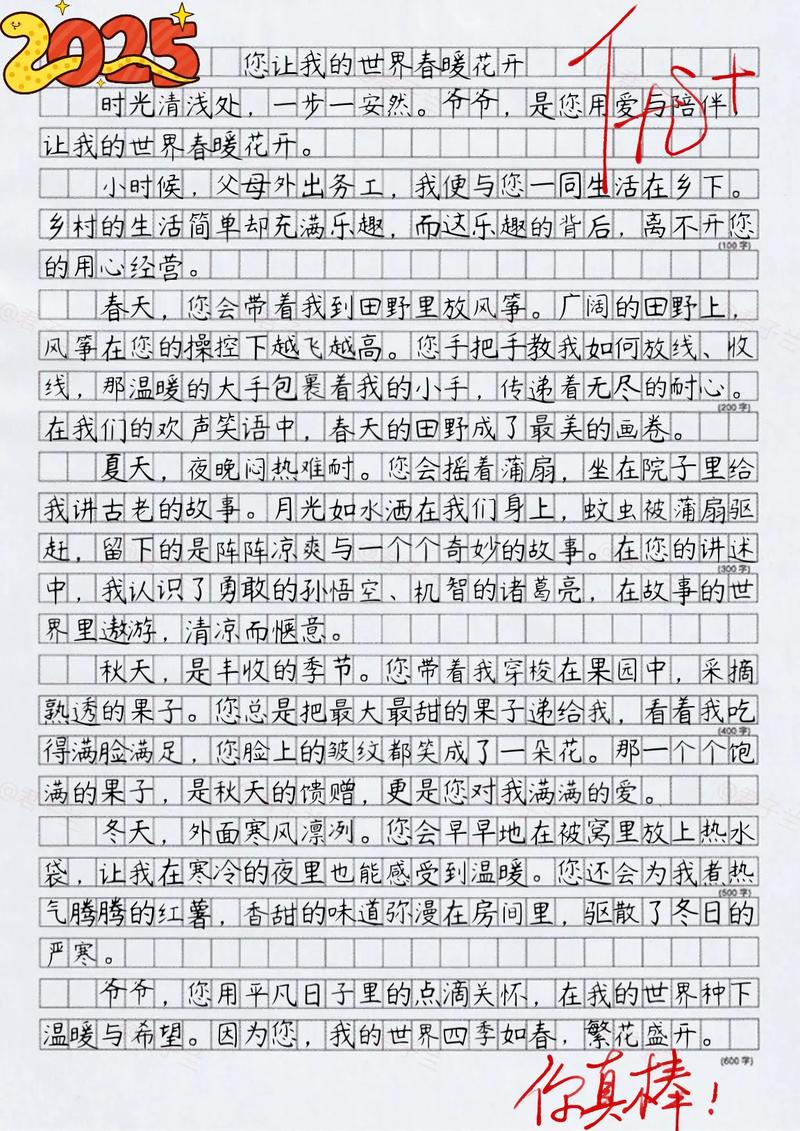 2025
您让我的世界春暖花开
优+
时光清浅处，一步一安然。爷爷，是您用爱与陪伴，
让我的世界春暖花开。
小时候，父母外出务工，我便与您一同生活在乡下。
乡村的生活简单却充满乐趣，而这乐趣的背后，离不开您
(100字)
的用心经营。
春天，您会带着我到田野里放风筝。广阔的田野上，
风筝在您的操控下越飞越高。您手把手教我如何放线、收
线，那温暖的大手包裹着我的小手，传递着无尽的耐心。
(200字)
在我们的欢声笑语中，春天的田野成了最美的画卷。
夏天，夜晚闷热难耐。您会摇着蒲扇，坐在院子里给
我讲古老的故事。月光如水洒在我们身上，蚊虫被蒲扇驱
赶，留下的是阵阵凉爽与一个个奇妙的故事。在您的讲述
(300字)
中，我认识了勇敢的孙悟空、机智的诸葛亮，在故事的世
界里遨游，清凉而惬意。
秋天，是丰收的季节。您带着我穿梭在果园中，采摘
熟透的果子。您总是把最大最甜的果子递给我，看着我吃
(400字)
得满脸满足，您脸上的皱纹都笑成了一朵花。那一个个饱
满的果子，是秋天的馈赠，更是您对我满满的爱。
冬天，外面寒风凛冽。您会早早地在被窝里放上热水
袋，让我在寒冷的夜里也能感受到温暖。您还会为我煮热
(500字)
气腾腾的红薯，香甜的味道弥漫在房间里，驱散了冬日的
严寒。
爷爷，您用平凡日子里的点滴关怀，在我的世界种下
温暖与希望。因为您，我的世界四季如春，繁花盛开。
(600字)
你真棒！
@君子兰